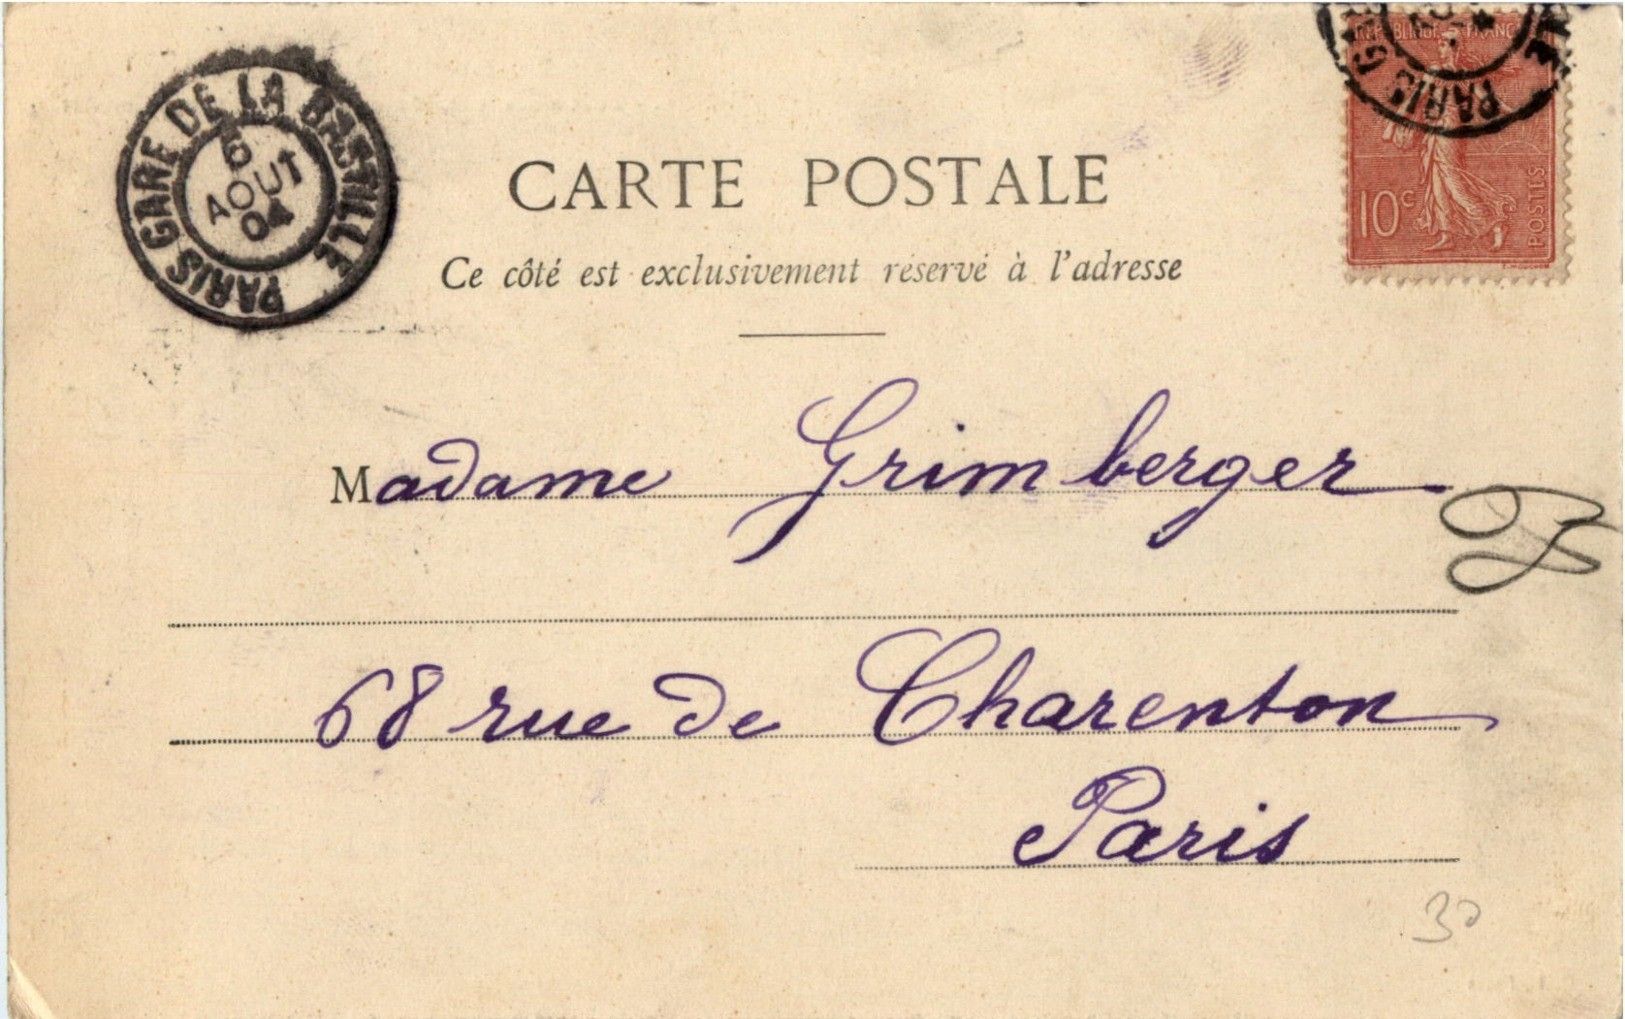 PARIS GARE DE LA BASTILLE
6
AOUT
04
REPUBLIQUE FRANC
PARIS G
10c
POSTES
CARTE POSTALE
Ce côté est exclusivement réservé à l'adresse
Madame Grimberger
68 rue de Charenton
Paris
30